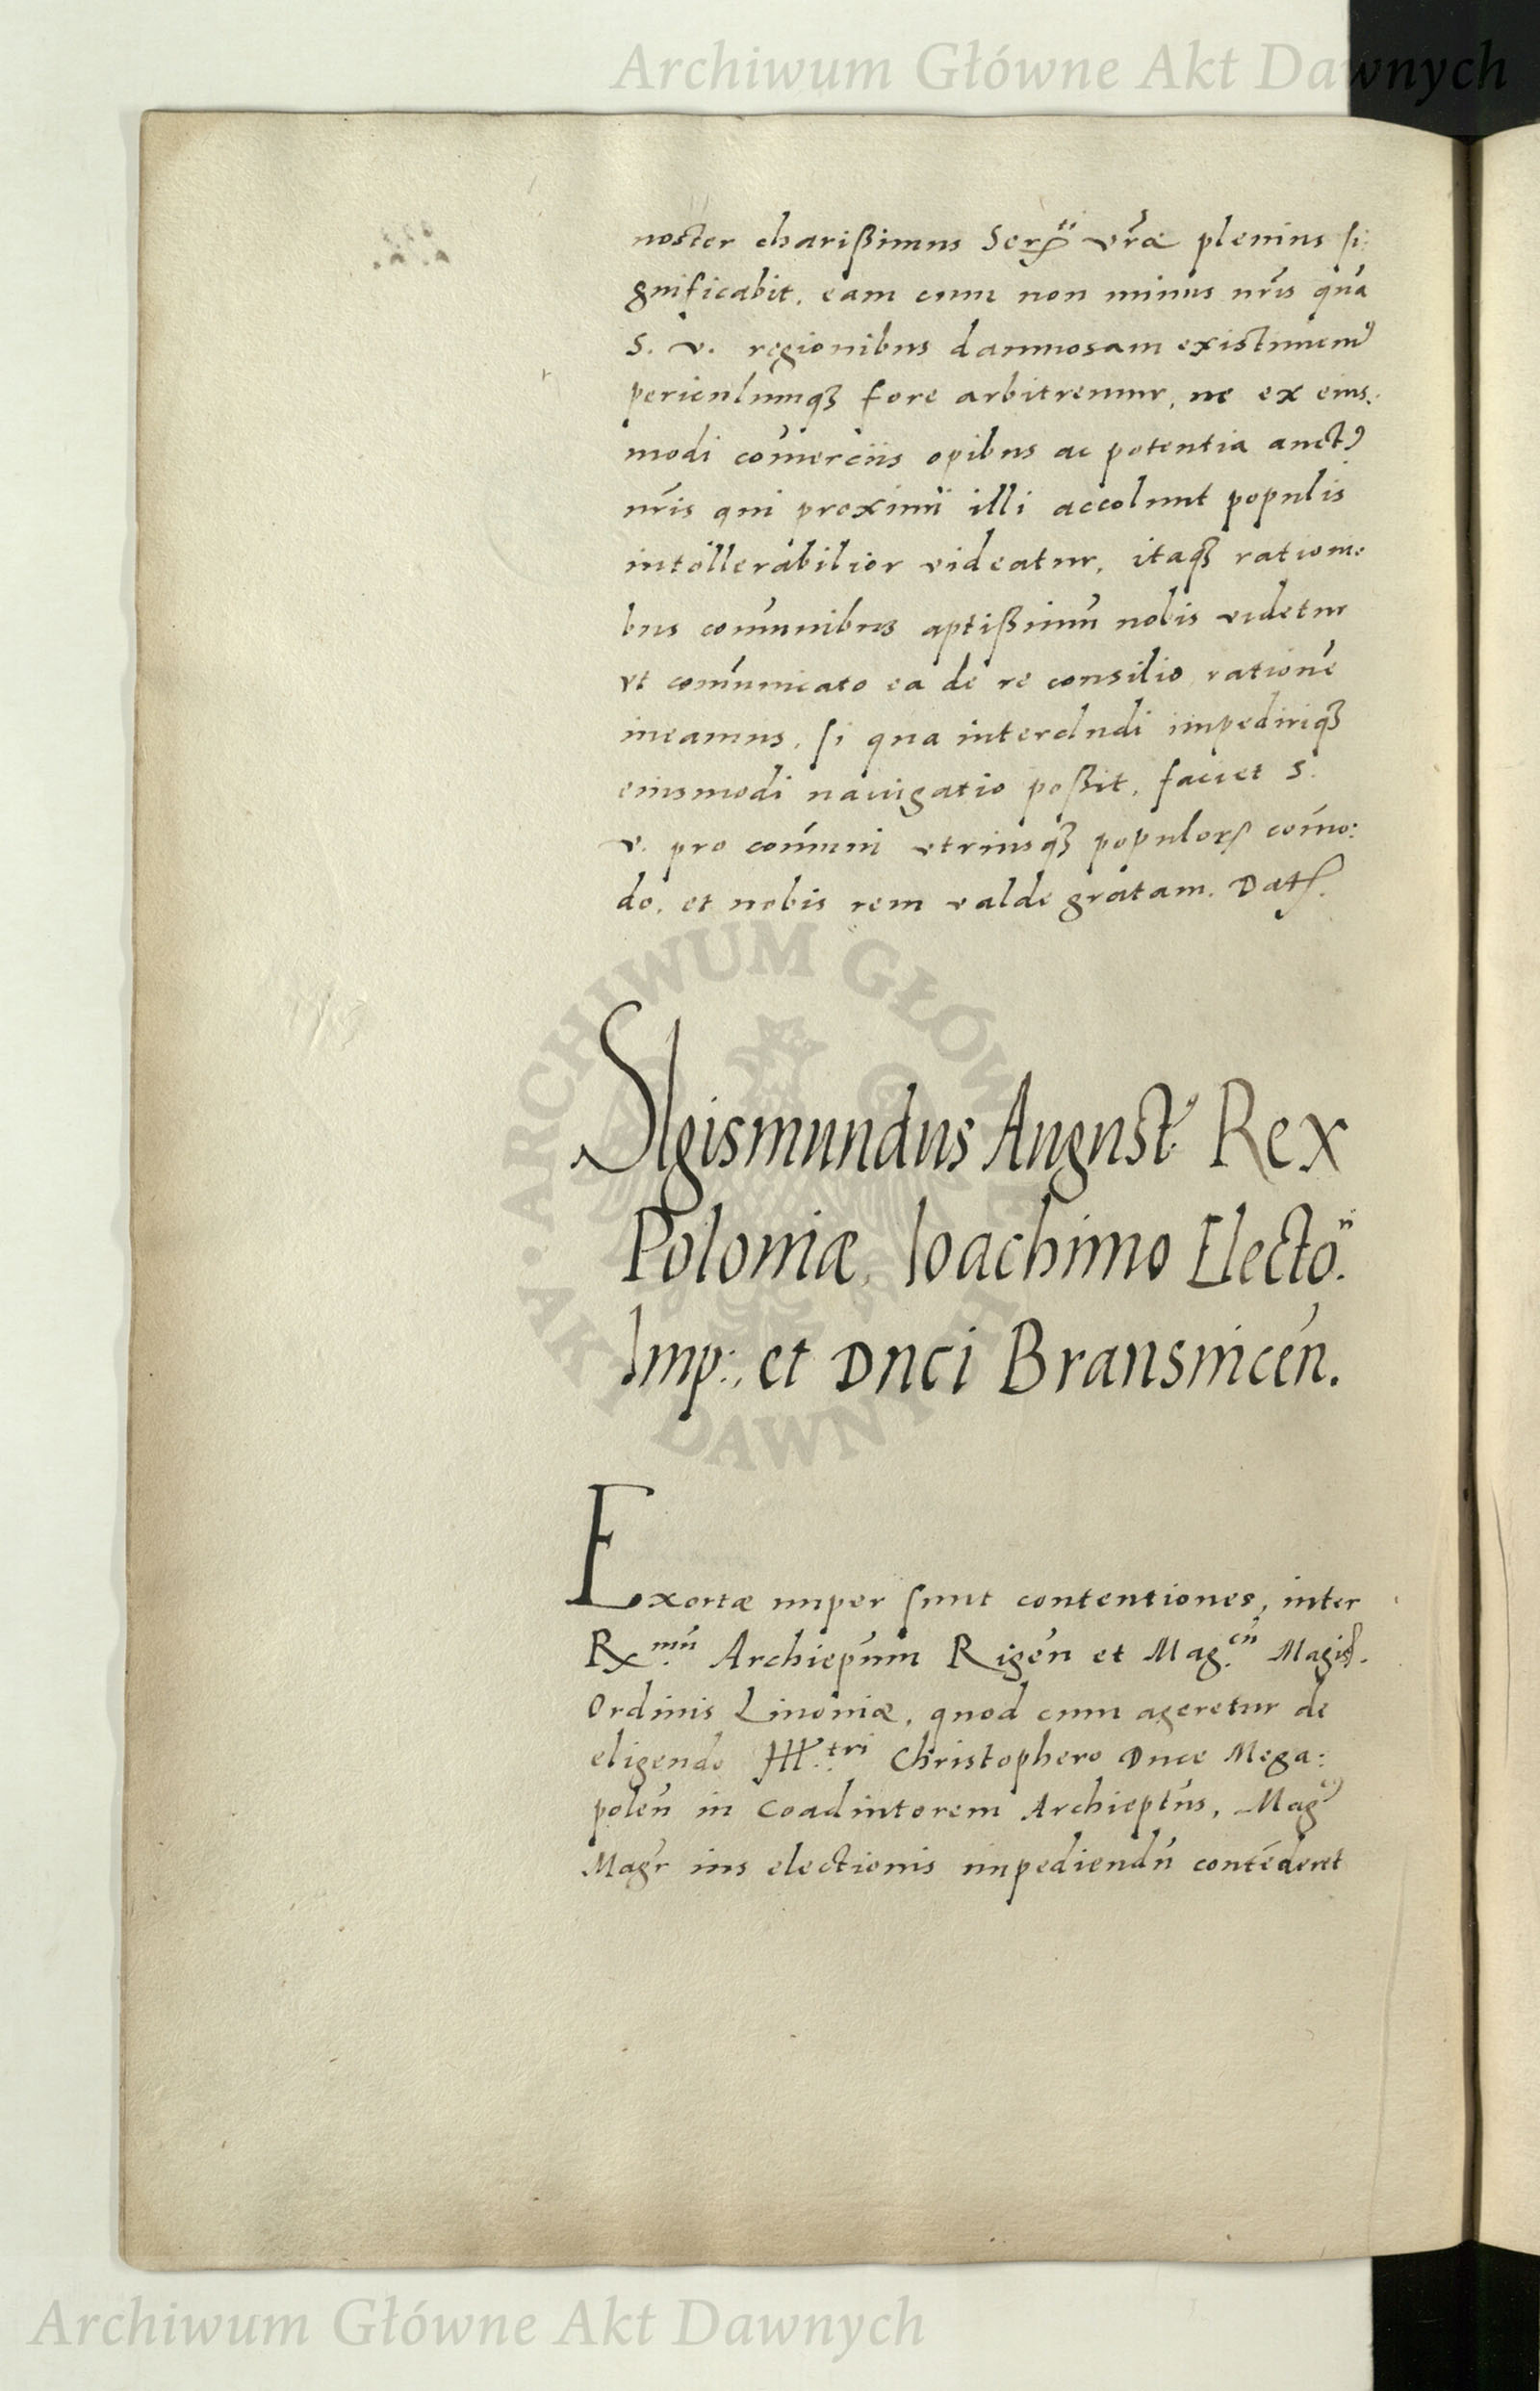 Archiwum Główne Akt Dawnych
noster charißimus Ser^ti vr̃ae plenius si:
gnificabit, eam cum non minus nr̃is quã
S. v. regionibus damnosam existimemꝰ
periculumqꝫ fore arbitremur, ne ex eius:
modi com̃erciis opibus ac potentia auctꝰ
nr̃is qui proximi illi accolunt populis
intollerabilior videatur, itaqꝫ rationi:
bus com̃unibus aptißimũ nobis videtur
vt com̃unicato ea de re consilio rationẽ
ineamus, si qua intercludi impediriqꝫ
eiusmodi nauigatio poßit, faciet S.
v. pro com̃uni vtriusqꝫ populorꝝ com̃o:
do, et nobis rem valde gratam. Dat.
ARCHIWUM GŁÓWNE AKT DAWNYCH
SIgismundus Augustꝰ Rex
Poloniæ, Ioachimo Electo.^ri
Imp:, et Duci Bransuicen̄.
Exortæ nuper sunt contentiones, inter
R.^mũ Archiepũm Rigen̄ et Mag.^cũ Magist.
Ordinis Liuoniæ, quod cum ageretur de
eligendo Ill.^tri Christophero Duce Mega:
polen̄ in Coadiutorem Archieptũs, Mag^cꝰ
Magr̃ ius electionis impediendũ contẽderet
Archiwum Główne Akt Dawnych